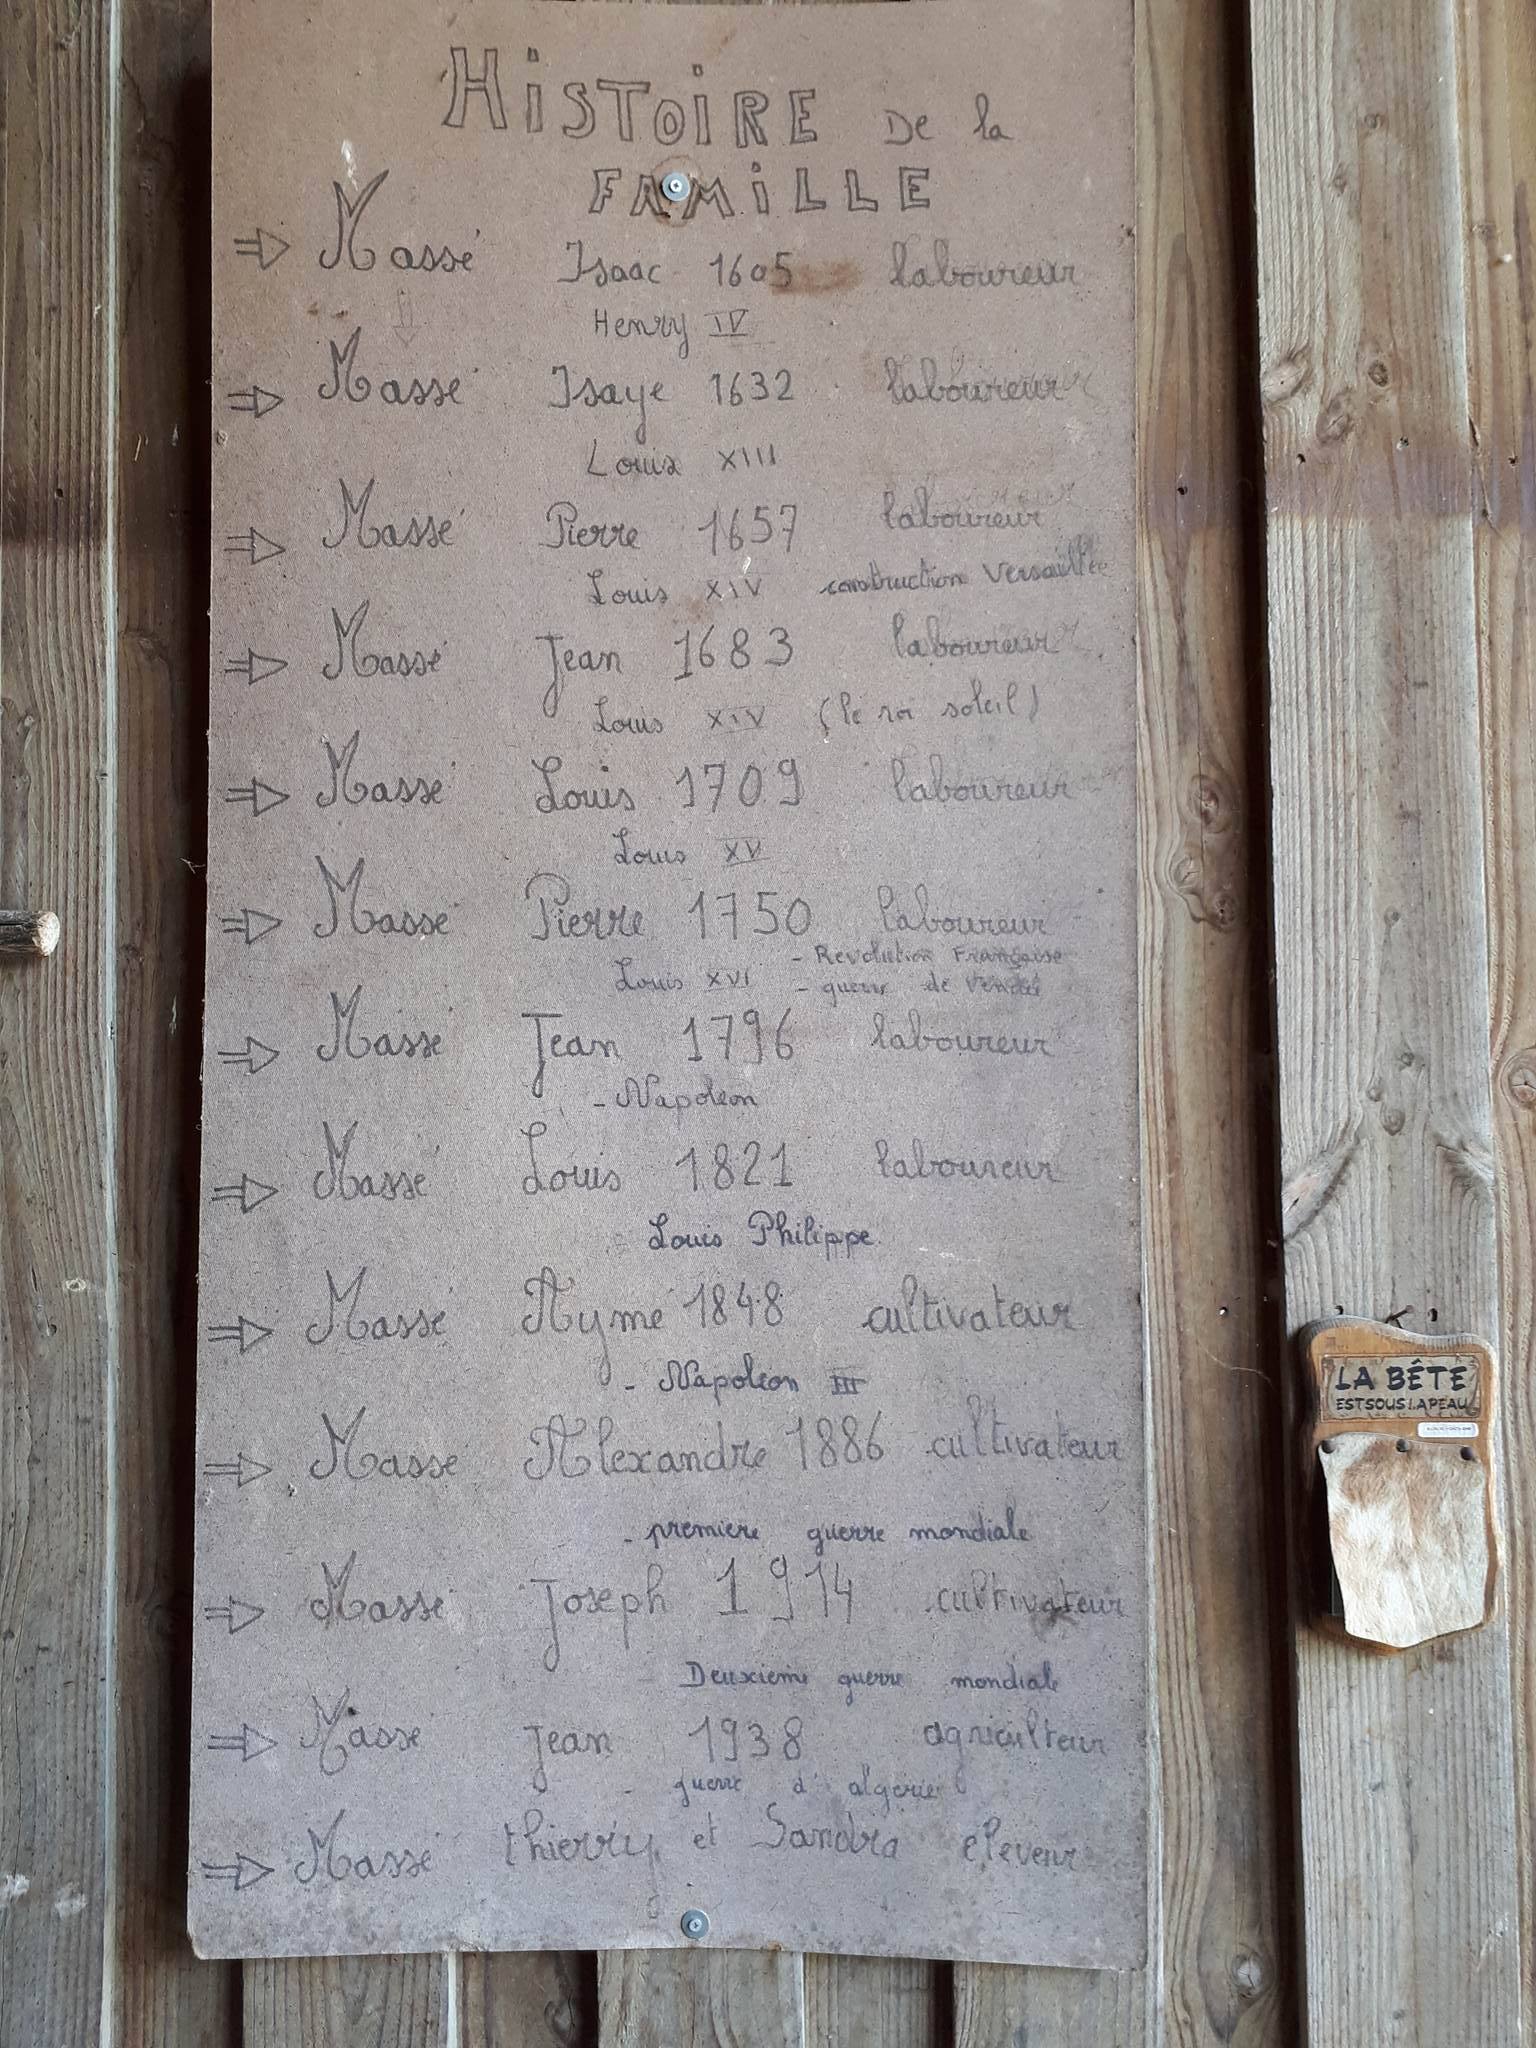 HiSTOiRE De la
FAMiLLE
Massé Isaac 1605 laboureur
Henry IV
Massé Isaye 1632 laboureur
Louis XIII
Massé Pierre 1657 laboureur
Louis XIV construction Versailles
Massé Jean 1683 laboureur
Louis XIV (le roi soleil)
Massé Louis 1709 laboureur
Louis XV
Massé Pierre 1750 laboureur
- Revolution Française
Louis XVI - guerre de Vendée
Massé Jean 1796 laboureur
- Napoléon
Massé Louis 1821 laboureur
Louis Philippe
Massé Aymé 1848 cultivateur
- Napoléon III
Massé Alexandre 1886 cultivateur
- première guerre mondiale
Massé Joseph 1914 cultivateur
- Deuxième guerre mondiale
Massé Jean 1938 agriculteur
- guerre d'algerie
Massé thierry et Sandra eleveur
LA BÊTE
EST SOUS LA PEAU